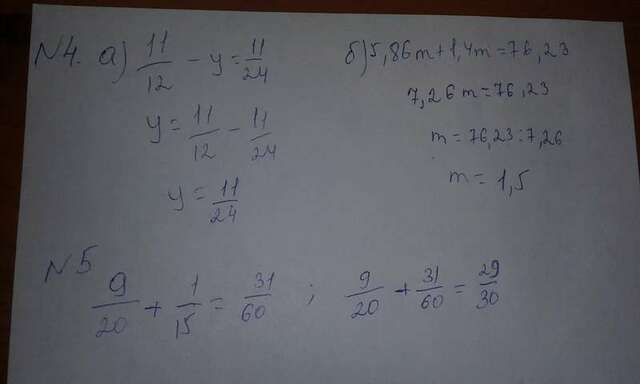 N4. а) 11/12 - y = 11/24
y = 11/12 - 11/24
y = 11/24
б) 5,86m + 1,4m = 76,23
7,26m = 76,23
m = 76,23 : 7,26
m = 1,5
N5
9/20 + 1/15 = 31/60 ; 9/20 + 31/60 = 29/30